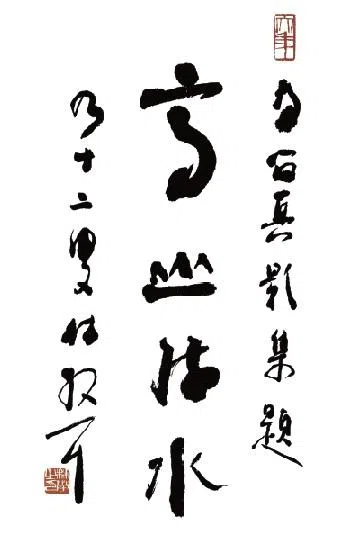 为石真影集题
高山流水
九十二叟林散耳